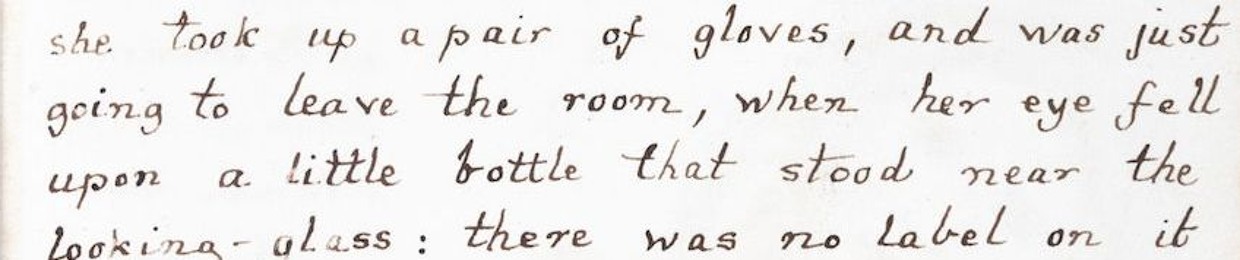 she took up a pair of gloves, and was just
going to leave the room, when her eye fell
upon a little bottle that stood near the
looking-glass: there was no label on it